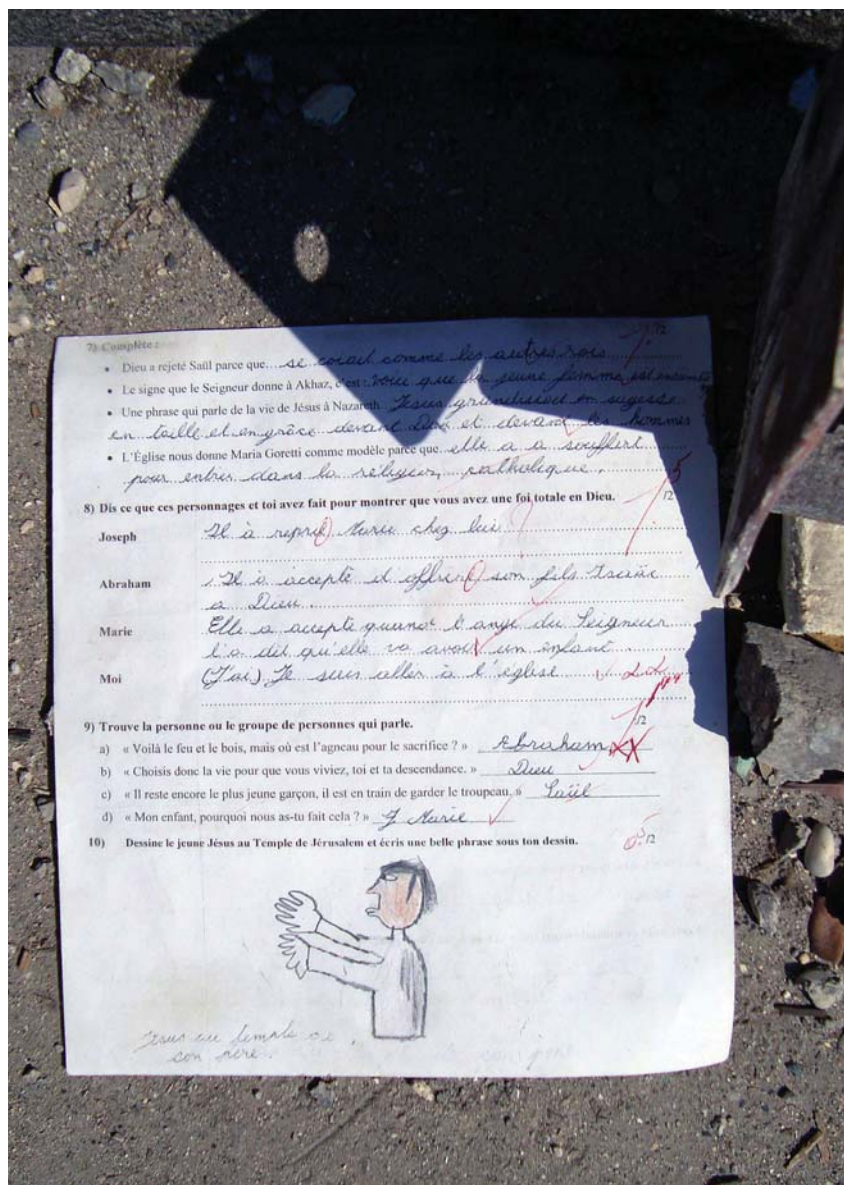 7) Complète :
/2
• Dieu a rejeté Saül parce que... se coiait comme les autres rois
• Le signe que le Seigneur donne à Akhaz, c'est : voice que la jeune femme est enceinte
• Une phrase qui parle de la vie de Jésus à Nazareth. Jesus grandissait en sagesse
en taille et en grâce devant Dieu et devant les hommes
• L'Église nous donne Maria Goretti comme modèle parce que elle a a souffert
pour entrer dans la réligieux catholique.
8) Dis ce que ces personnages et toi avez fait pour montrer que vous avez une foi totale en Dieu. /2
Joseph Il à repris Marie chez lui
Abraham Il à accepté d'offrire son fils Isaac
a Dieu
Marie Elle a accepte quand l'ange du Seigneur
l'a dit qu'elle va avoir un enfant
Moi (J'ai) Je suis aller à l'église
9) Trouve la personne ou le groupe de personnes qui parle. /2
a) « Voilà le feu et le bois, mais où est l'agneau pour le sacrifice ? » Abraham
b) « Choisis donc la vie pour que vous viviez, toi et ta descendance. » Dieu
c) « Il reste encore le plus jeune garçon, il est en train de garder le troupeau. » Saül
d) « Mon enfant, pourquoi nous as-tu fait cela ? » Marie
10) Dessine le jeune Jésus au Temple de Jérusalem et écris une belle phrase sous ton dessin. /2
Jesus au temple de
son père